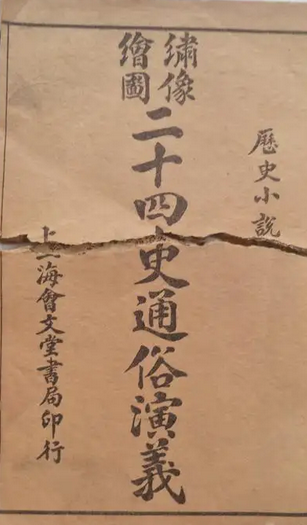 歷史小說
繡像
繪圖
二十四史通俗演義
上海會文堂書局印行